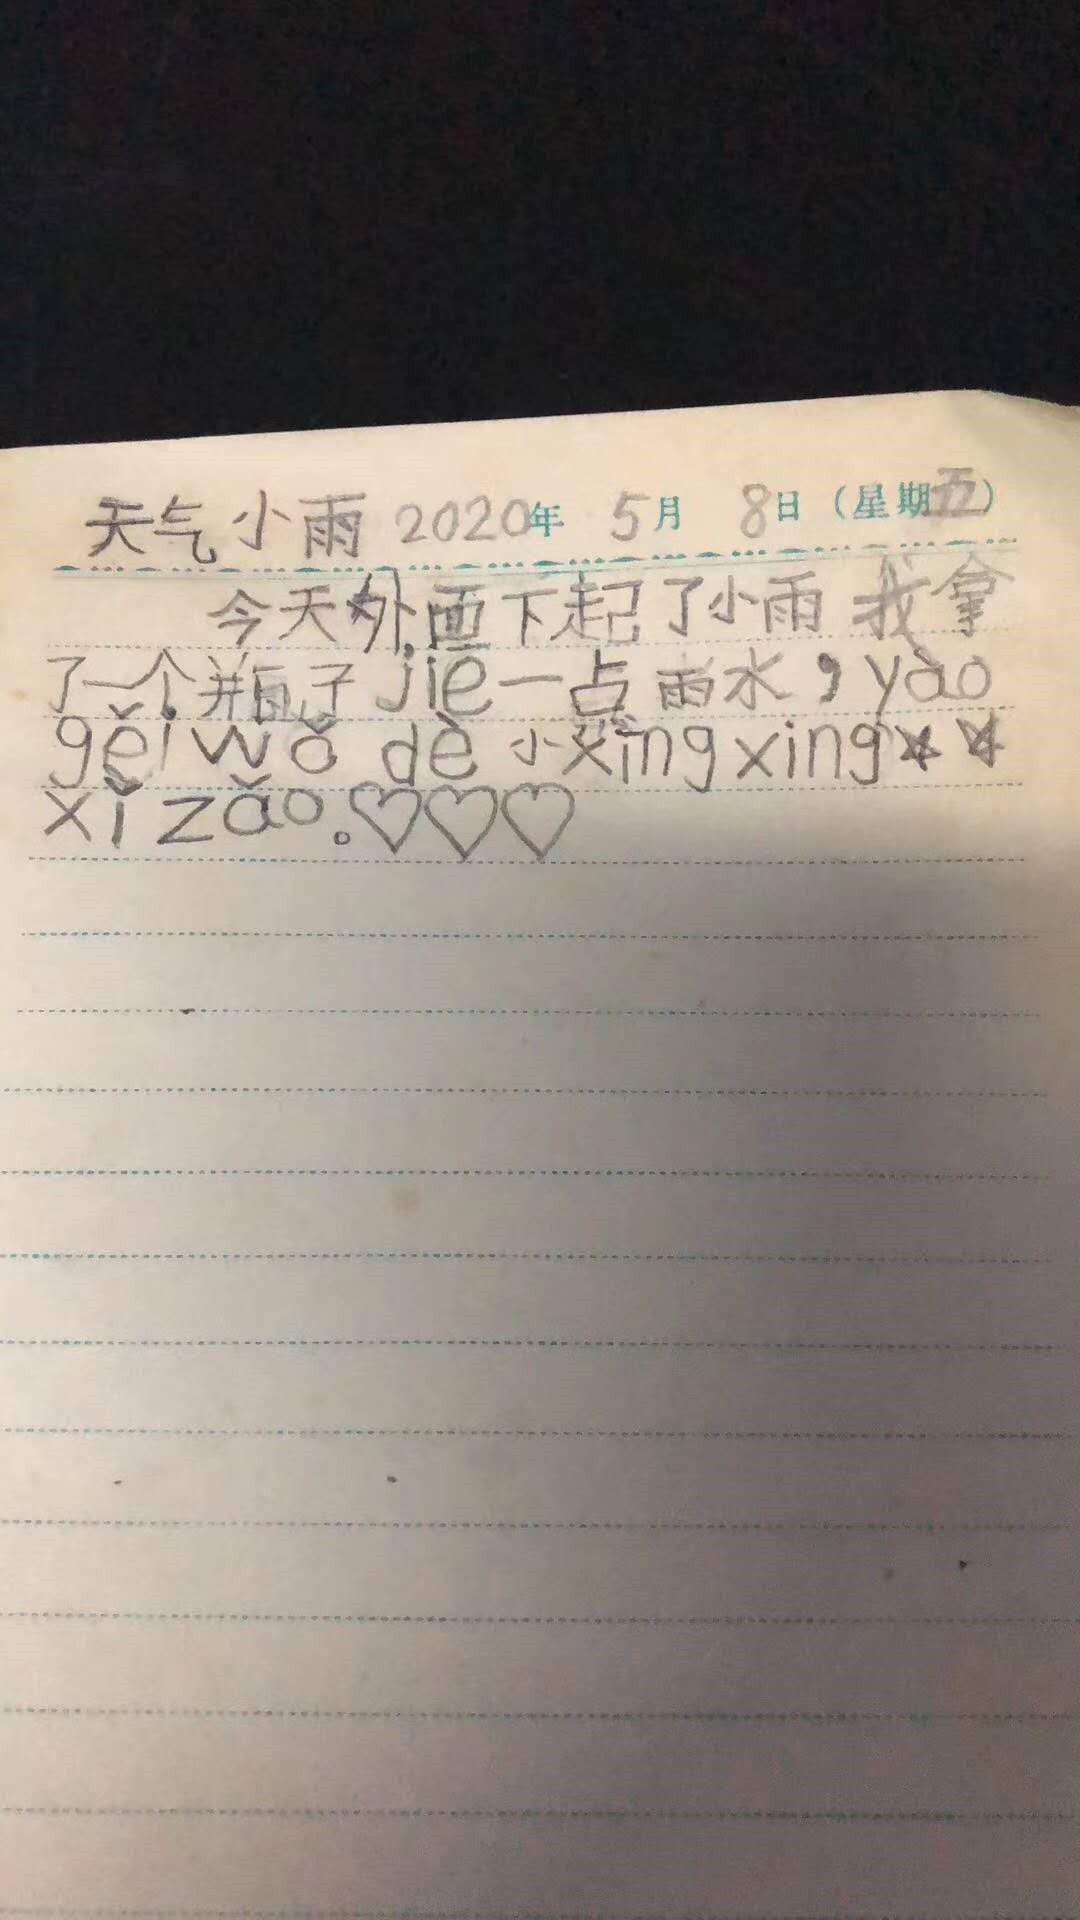 天气小雨 2020年 5月 8日（星期五）
今天外面下起了小雨 我拿
了一个瓶子 jie一点雨水，yào
gěi wǒ dè 小xīng xing★★
xǐ zǎo。♡♡♡